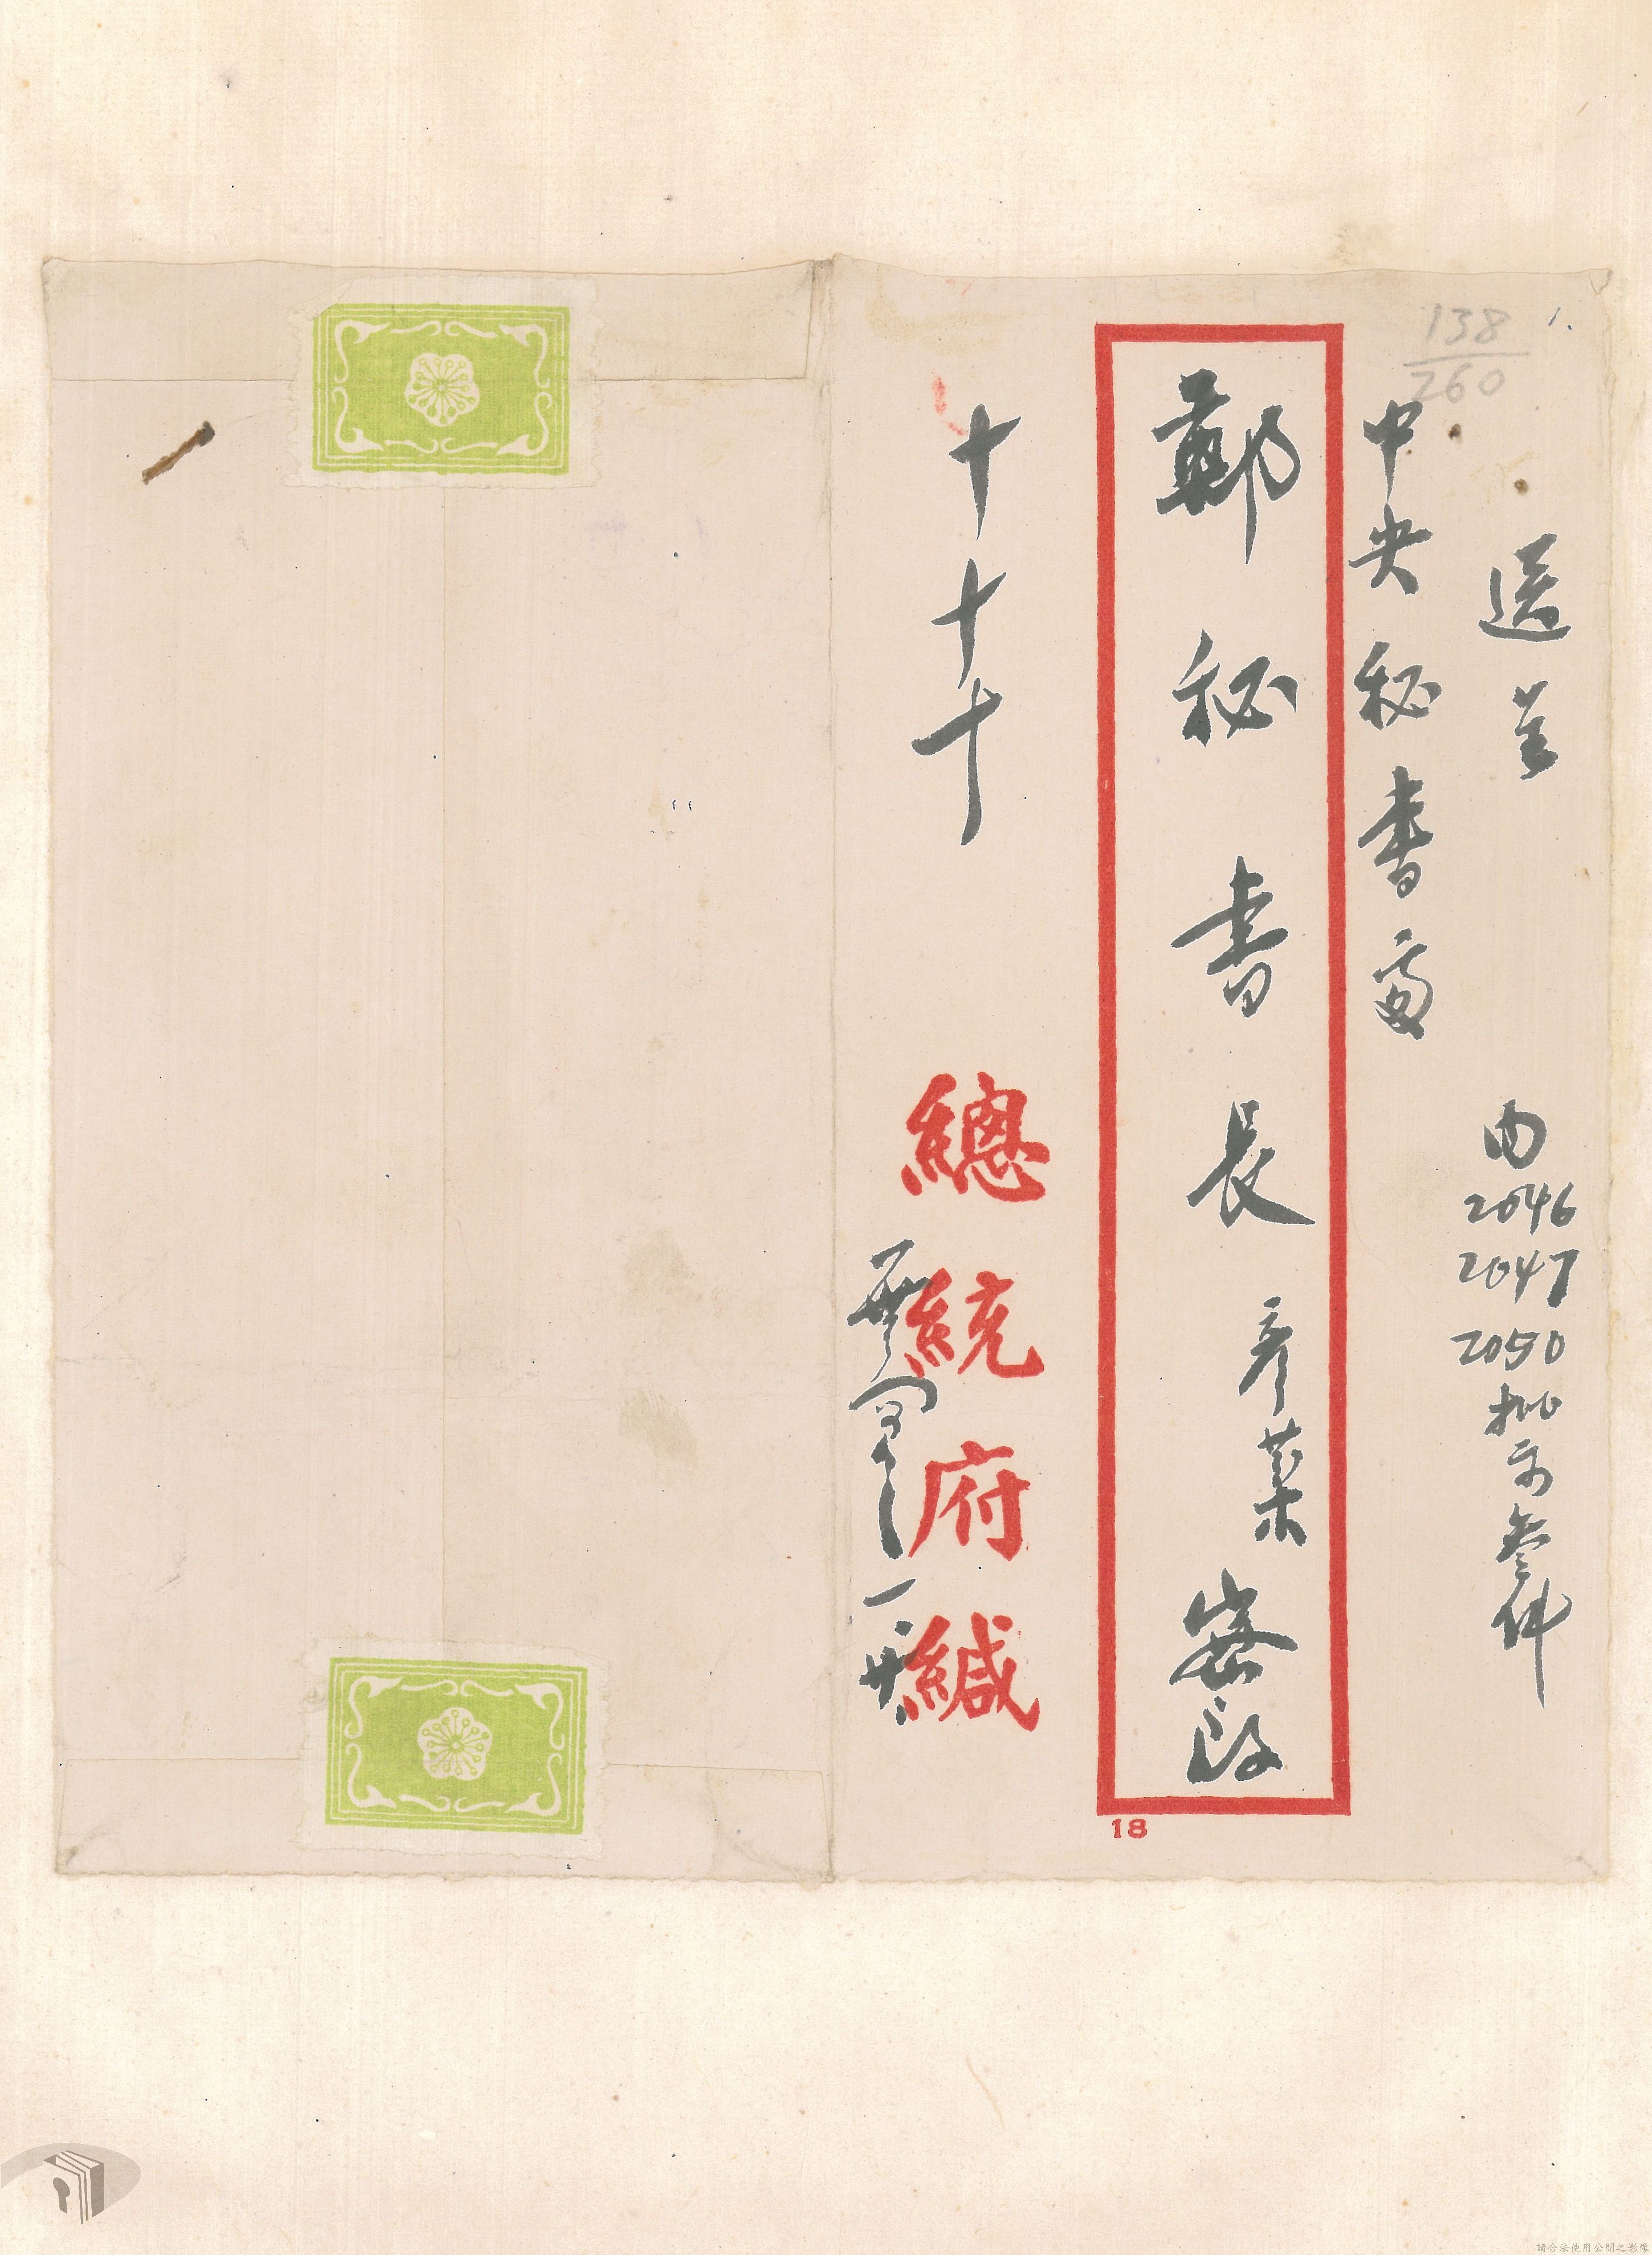 138
260
1.
送呈
內
2046
2047
2050
批示叁件
中央秘書處
鄭秘書長彥棻密啟
18
十十十
總統府緘
請合法使用公開之影像